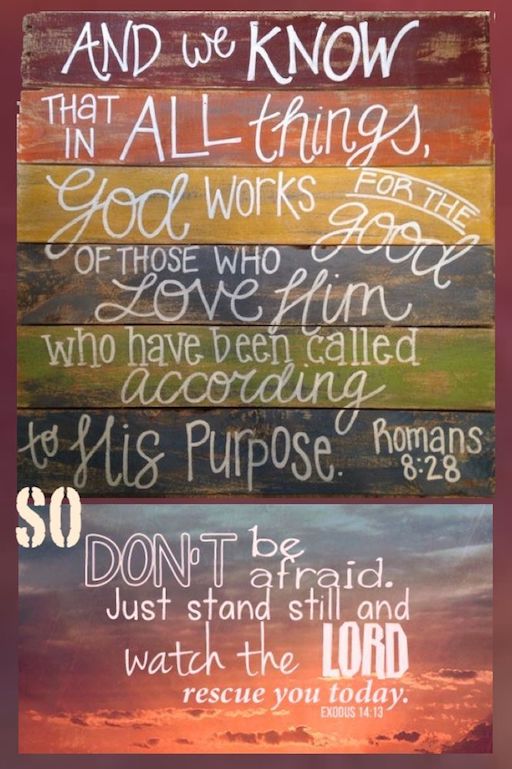 AND we KNOW
THAT IN ALL things,
God WORKS FOR THE good
OF THOSE WHO
LOVE Him
who have been called
according
to His Purpose. Romans 8:28
SO
DON'T be afraid.
Just stand still and
watch the LORD
rescue you today.
EXODUS 14:13